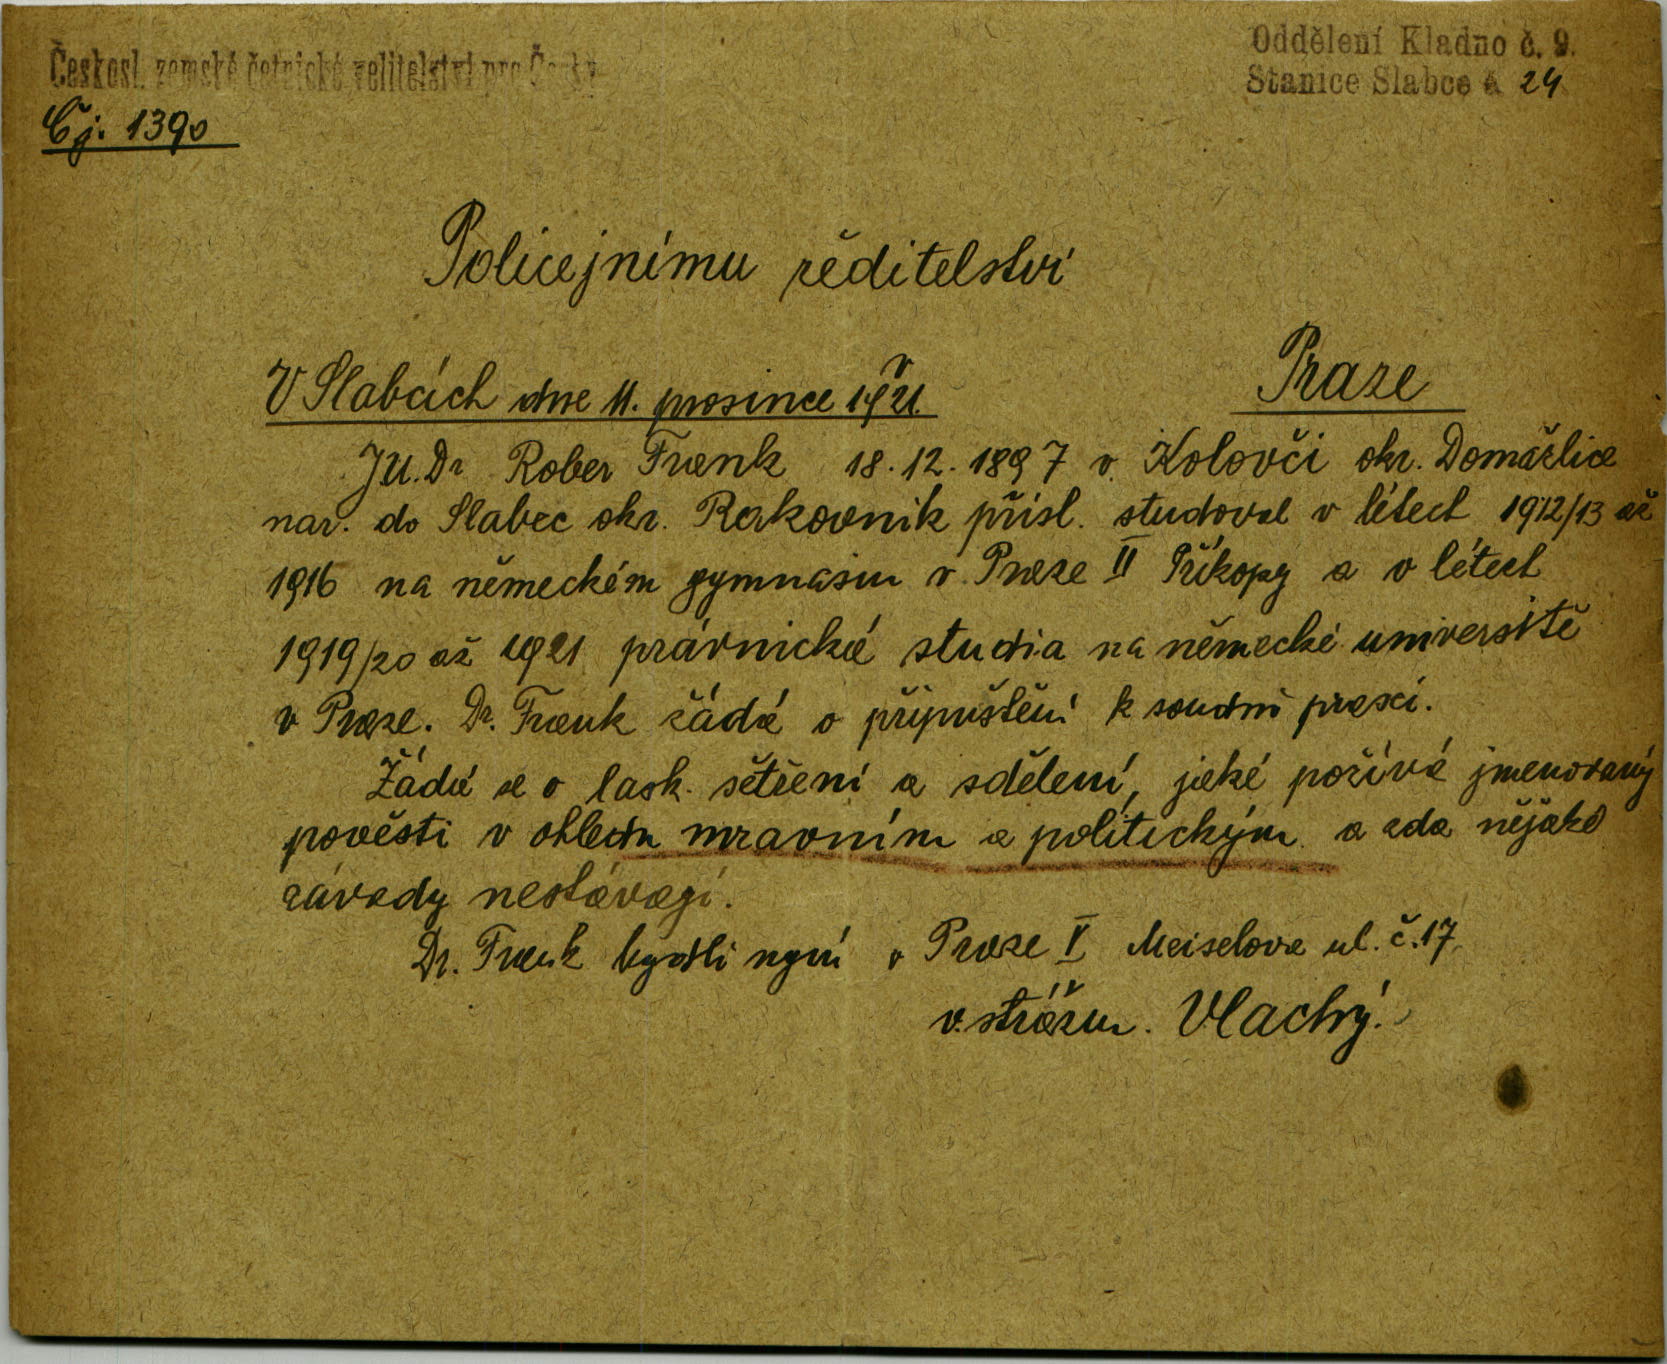 Českosl. zemské četnické velitelství pro Čechy
Oddělení Kladno č. 9.
Stanice Slabce č 24
Čj. 1390
Policejnímu ředitelství
v
Praze
V Slabcích dne 11. prosince 1921.
JU.Dr Rober Frank 18.12.1897 v. Kolovči okr. Domažlice
nar. do Slabec okr. Rakovník přísl. studoval v létech 1912/13 až
1916 na německém gymnasiu v Praze II Příkopy a v létech
1919/20 až 1921 právnická studia na německé universitě
v Praze. Dr. Frank žádá o připuštění k soudní praxi.
Žádá se o lask. šetření a sdělení, jaké požívá jmenovaný
pověsti v ohledu mravním a politickým a zda nějaké
závady nestávagí.
Dr. Frank bydlí nyní v Praze V Meiselova ul. č.17
v. strážm. Vlachý.